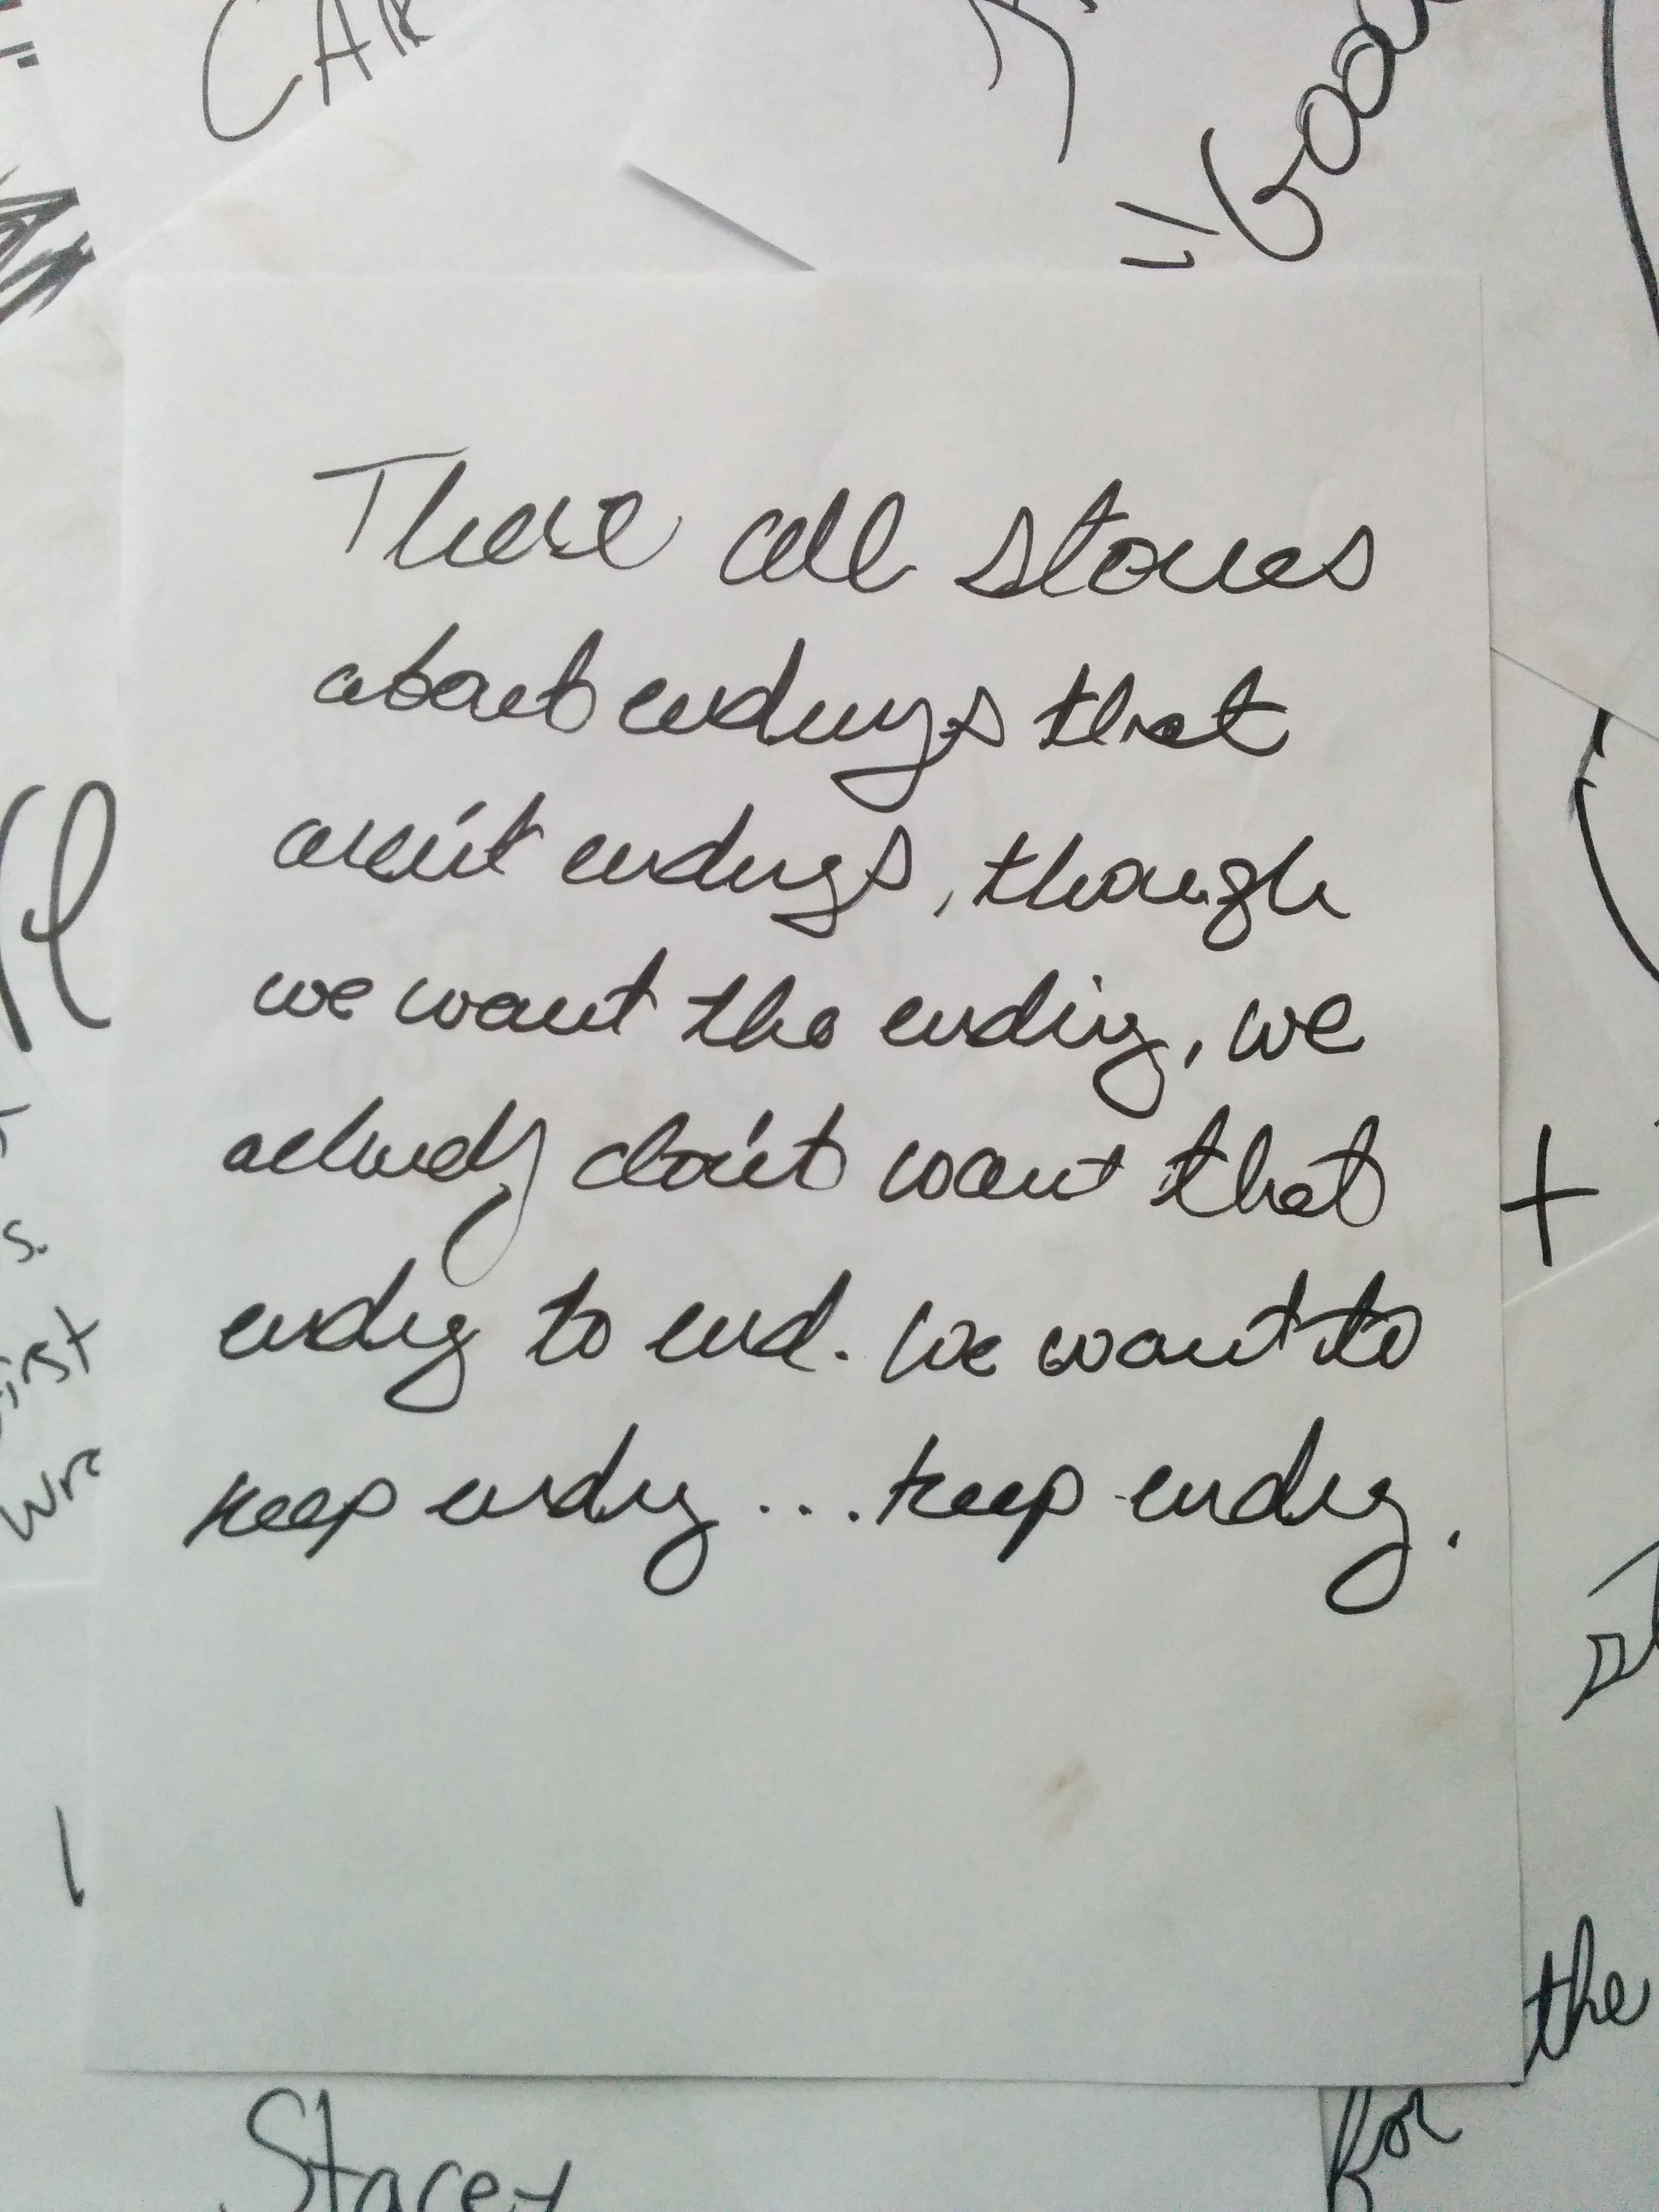 CAR
"Good
These all stories
about endings that
aren't endings, though
we want the ending, we
actually don't want that
ending to end. We want to
keep ending... keep ending.
+
s.
first
wre
the
for
Stacey